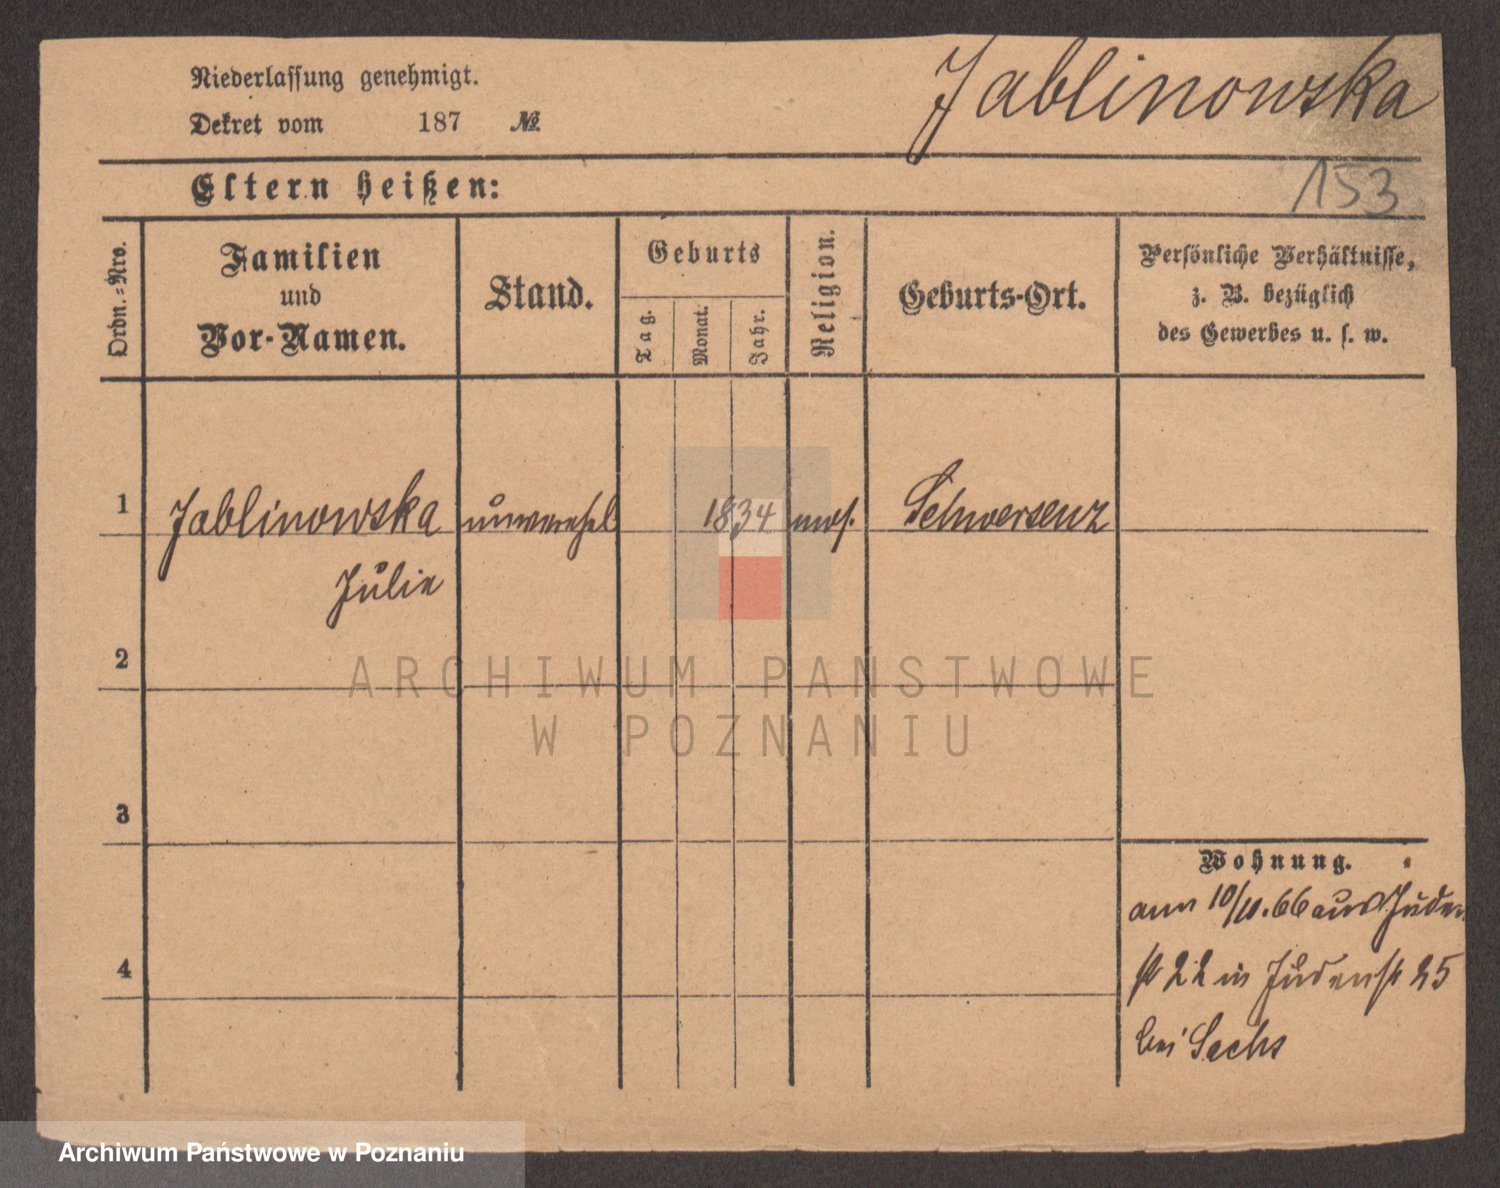 Niederlassung genehmigt.
Dekret vom 187 №
Jablinowska
153
Eltern heißen:
Ordn.-Nro.
Familien
und
Vor-Namen.
Stand.
Geburts
Tag.
Monat.
Jahr.
Religion.
Geburts-Ort.
Persönliche Verhältnisse,
z. B. bezüglich
des Gewerbes u. s. w.
1
Jablinowska
Julie
unverehel
1834
mos.
Schwersenz
2
3
4
Wohnung.
am 10/11.66 aus Juden
st 22 in Judenst 25
bei Sachs
ARCHIWUM PAŃSTWOWE
W POZNANIU
Archiwum Państwowe w Poznaniu